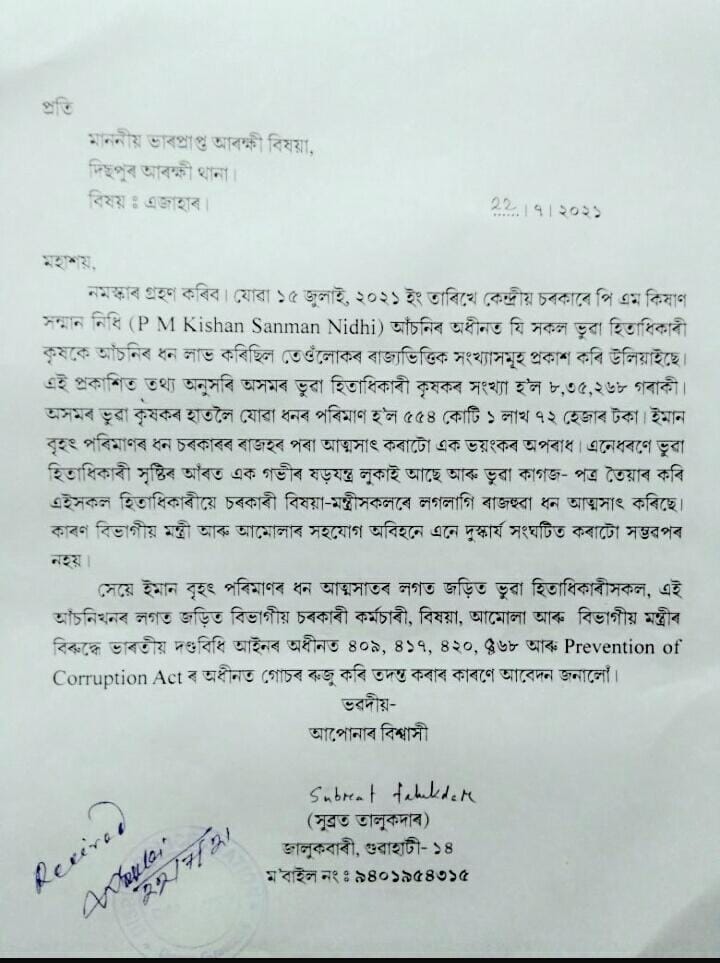 প্ৰতি
মাননীয় ভাৰপ্ৰাপ্ত আৰক্ষী বিষয়া,
দিছপুৰ আৰক্ষী থানা।
বিষয় ঃ এজাহাৰ।
22.।৭।২০২১
মহাশয়,
নমস্কাৰ গ্ৰহণ কৰিব। যোৱা ১৫ জুলাই, ২০২১ ইং তাৰিখে কেন্দ্ৰীয় চৰকাৰে পি এম কিষাণ
সন্মান নিধি (P M Kishan Sanman Nidhi) আঁচনিৰ অধীনত যি সকল ভুৱা হিতাধিকাৰী
কৃষকে আঁচনিৰ ধন লাভ কৰিছিল তেওঁলোকৰ ৰাজ্যভিত্তিক সংখ্যাসমূহ প্ৰকাশ কৰি উলিয়াইছে।
এই প্ৰকাশিত তথ্য অনুসৰি অসমৰ ভুৱা হিতাধিকাৰী কৃষকৰ সংখ্যা হ'ল ৮,৩৫,২৬৮ গৰাকী।
অসমৰ ভুৱা কৃষকৰ হাতলৈ যোৱা ধনৰ পৰিমাণ হ'ল ৫৫৪ কোটি ১ লাখ ৭২ হেজাৰ টকা। ইমান
বৃহৎ পৰিমাণৰ ধন চৰকাৰৰ ৰাজহৰ পৰা আত্মসাৎ কৰাটো এক ভয়ংকৰ অপৰাধ। এনেধৰণে ভুৱা
হিতাধিকাৰী সৃষ্টিৰ আঁৰত এক গভীৰ ষড়যন্ত্ৰ লুকাই আছে আৰু ভুৱা কাগজ- পত্ৰ তৈয়াৰ কৰি
এইসকল হিতাধিকাৰীয়ে চৰকাৰী বিষয়া-মন্ত্ৰীসকলৰে লগলাগি ৰাজহুৱা ধন আত্মসাৎ কৰিছে।
কাৰণ বিভাগীয় মন্ত্ৰী আৰু আমোলাৰ সহযোগ অবিহনে এনে দুস্কাৰ্য সংঘটিত কৰাটো সম্ভৱপৰ
নহয়।
সেয়ে ইমান বৃহৎ পৰিমাণৰ ধন আত্মসাতৰ লগত জড়িত ভুৱা হিতাধিকাৰীসকল, এই
আঁচনিখনৰ লগত জড়িত বিভাগীয় চৰকাৰী কৰ্মচাৰী, বিষয়া, আমোলা আৰু বিভাগীয় মন্ত্ৰীৰ
বিৰুদ্ধে ভাৰতীয় দণ্ডবিধি আইনৰ অধীনত ৪০৯, ৪১৭, ৪২০, ৪৬৮ আৰু Prevention of
Corruption Act ৰ অধীনত গোচৰ ৰুজু কৰি তদন্ত কৰাৰ কাৰণে আবেদন জনালোঁ।
ভৱদীয়-
আপোনাৰ বিশ্বাসী
Subrat Talukdar
(সুব্ৰত তালুকদাৰ)
জালুকবাৰী, গুৱাহাটী- ১৪
ম'বাইল নং ঃ ৯৪০১৯৫৪৩১৫
Received
22/7/21